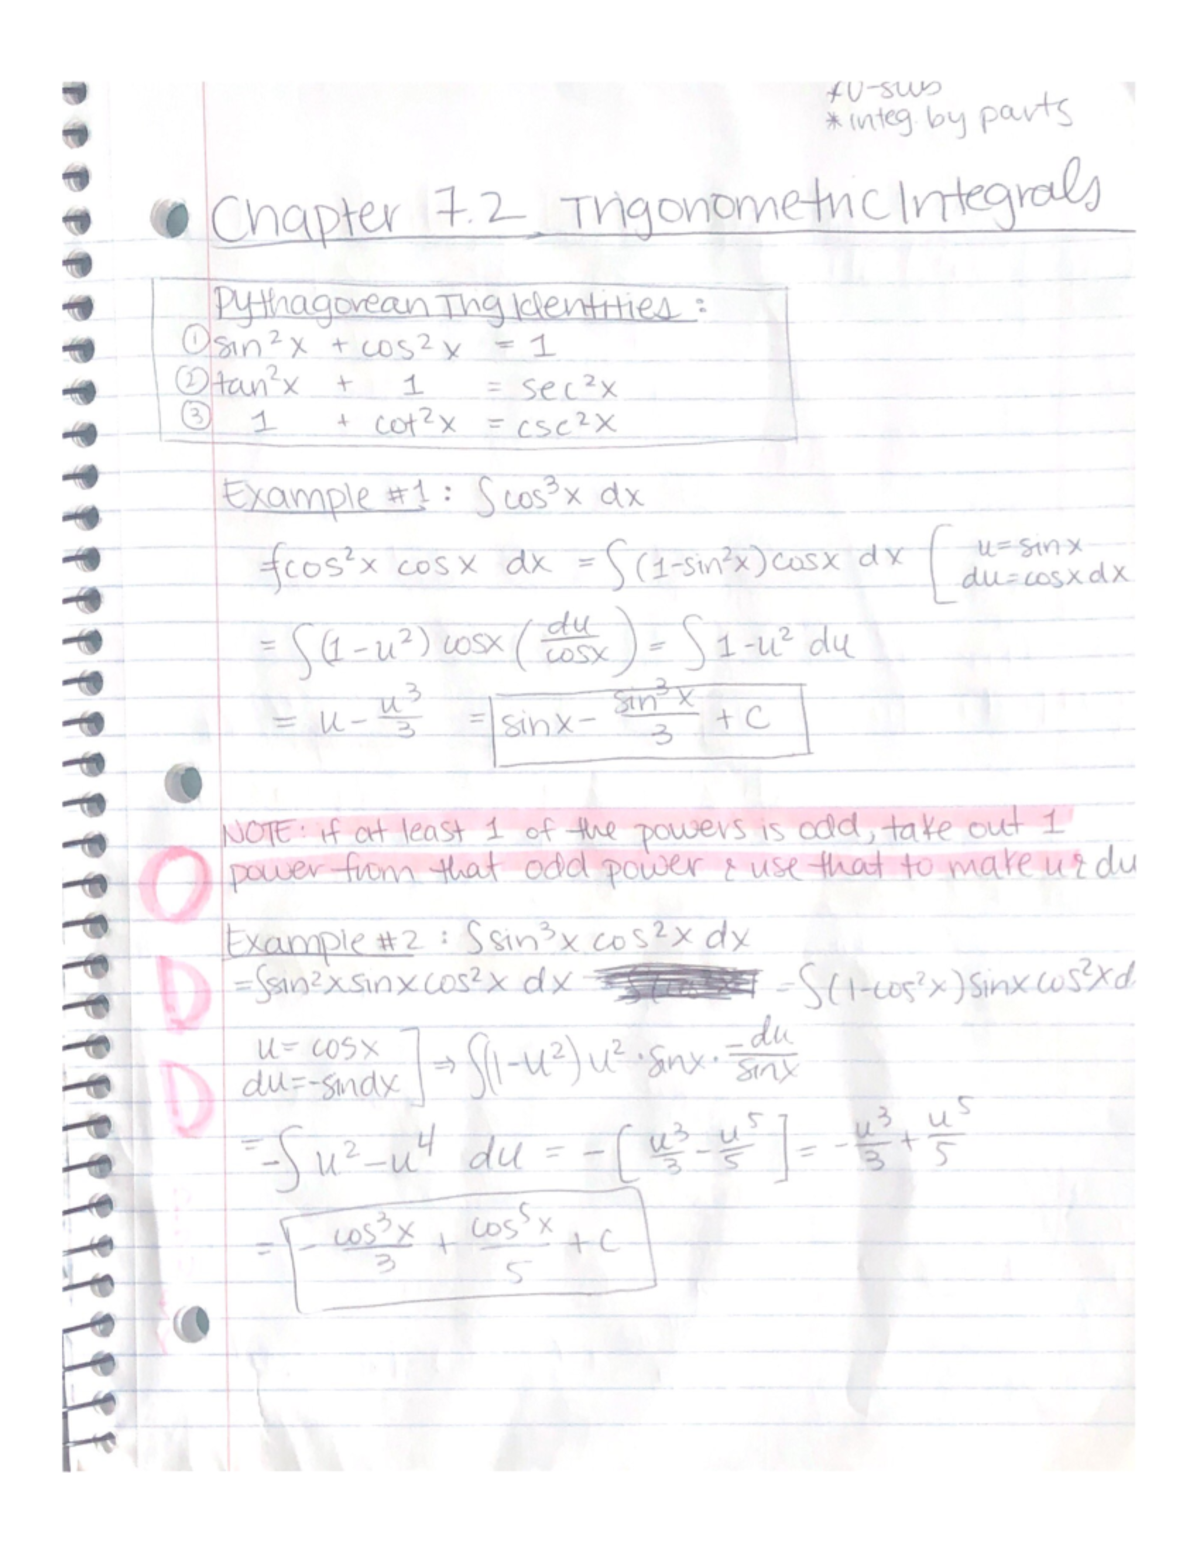 *U-sub
* integ. by parts
Chapter 7.2 Trigonometric Integrals
Pythagorean Trig Identities :
① sin²x + cos²x = 1
② tan²x + 1 = sec²x
③ 1 + cot²x = csc²x
Example #1 : ∫cos³x dx
∫cos²x cosx dx = ∫(1-sin²x)cosx dx [ u=sinx
du=cosxdx
= ∫(1-u²) cosx (du/cosx) = ∫1-u² du
= u - u³/3 = sinx - sin³x/3 + C
NOTE: if at least 1 of the powers is odd, take out 1
power from that odd power & use that to make u & du
Example #2 : ∫sin³x cos²x dx
=∫sin²x sinx cos²x dx =∫(1-cos²x)sinx cos²x d
u= cosx
du=-sindx ] ⇒ ∫(1-u²)u²·sinx·-du/sinx
= -∫u²-u⁴ du = -[u³/3 - u⁵/5] = -u³/3 + u⁵/5
= -cos³x/3 + cos⁵x/5 + C
O
D
D